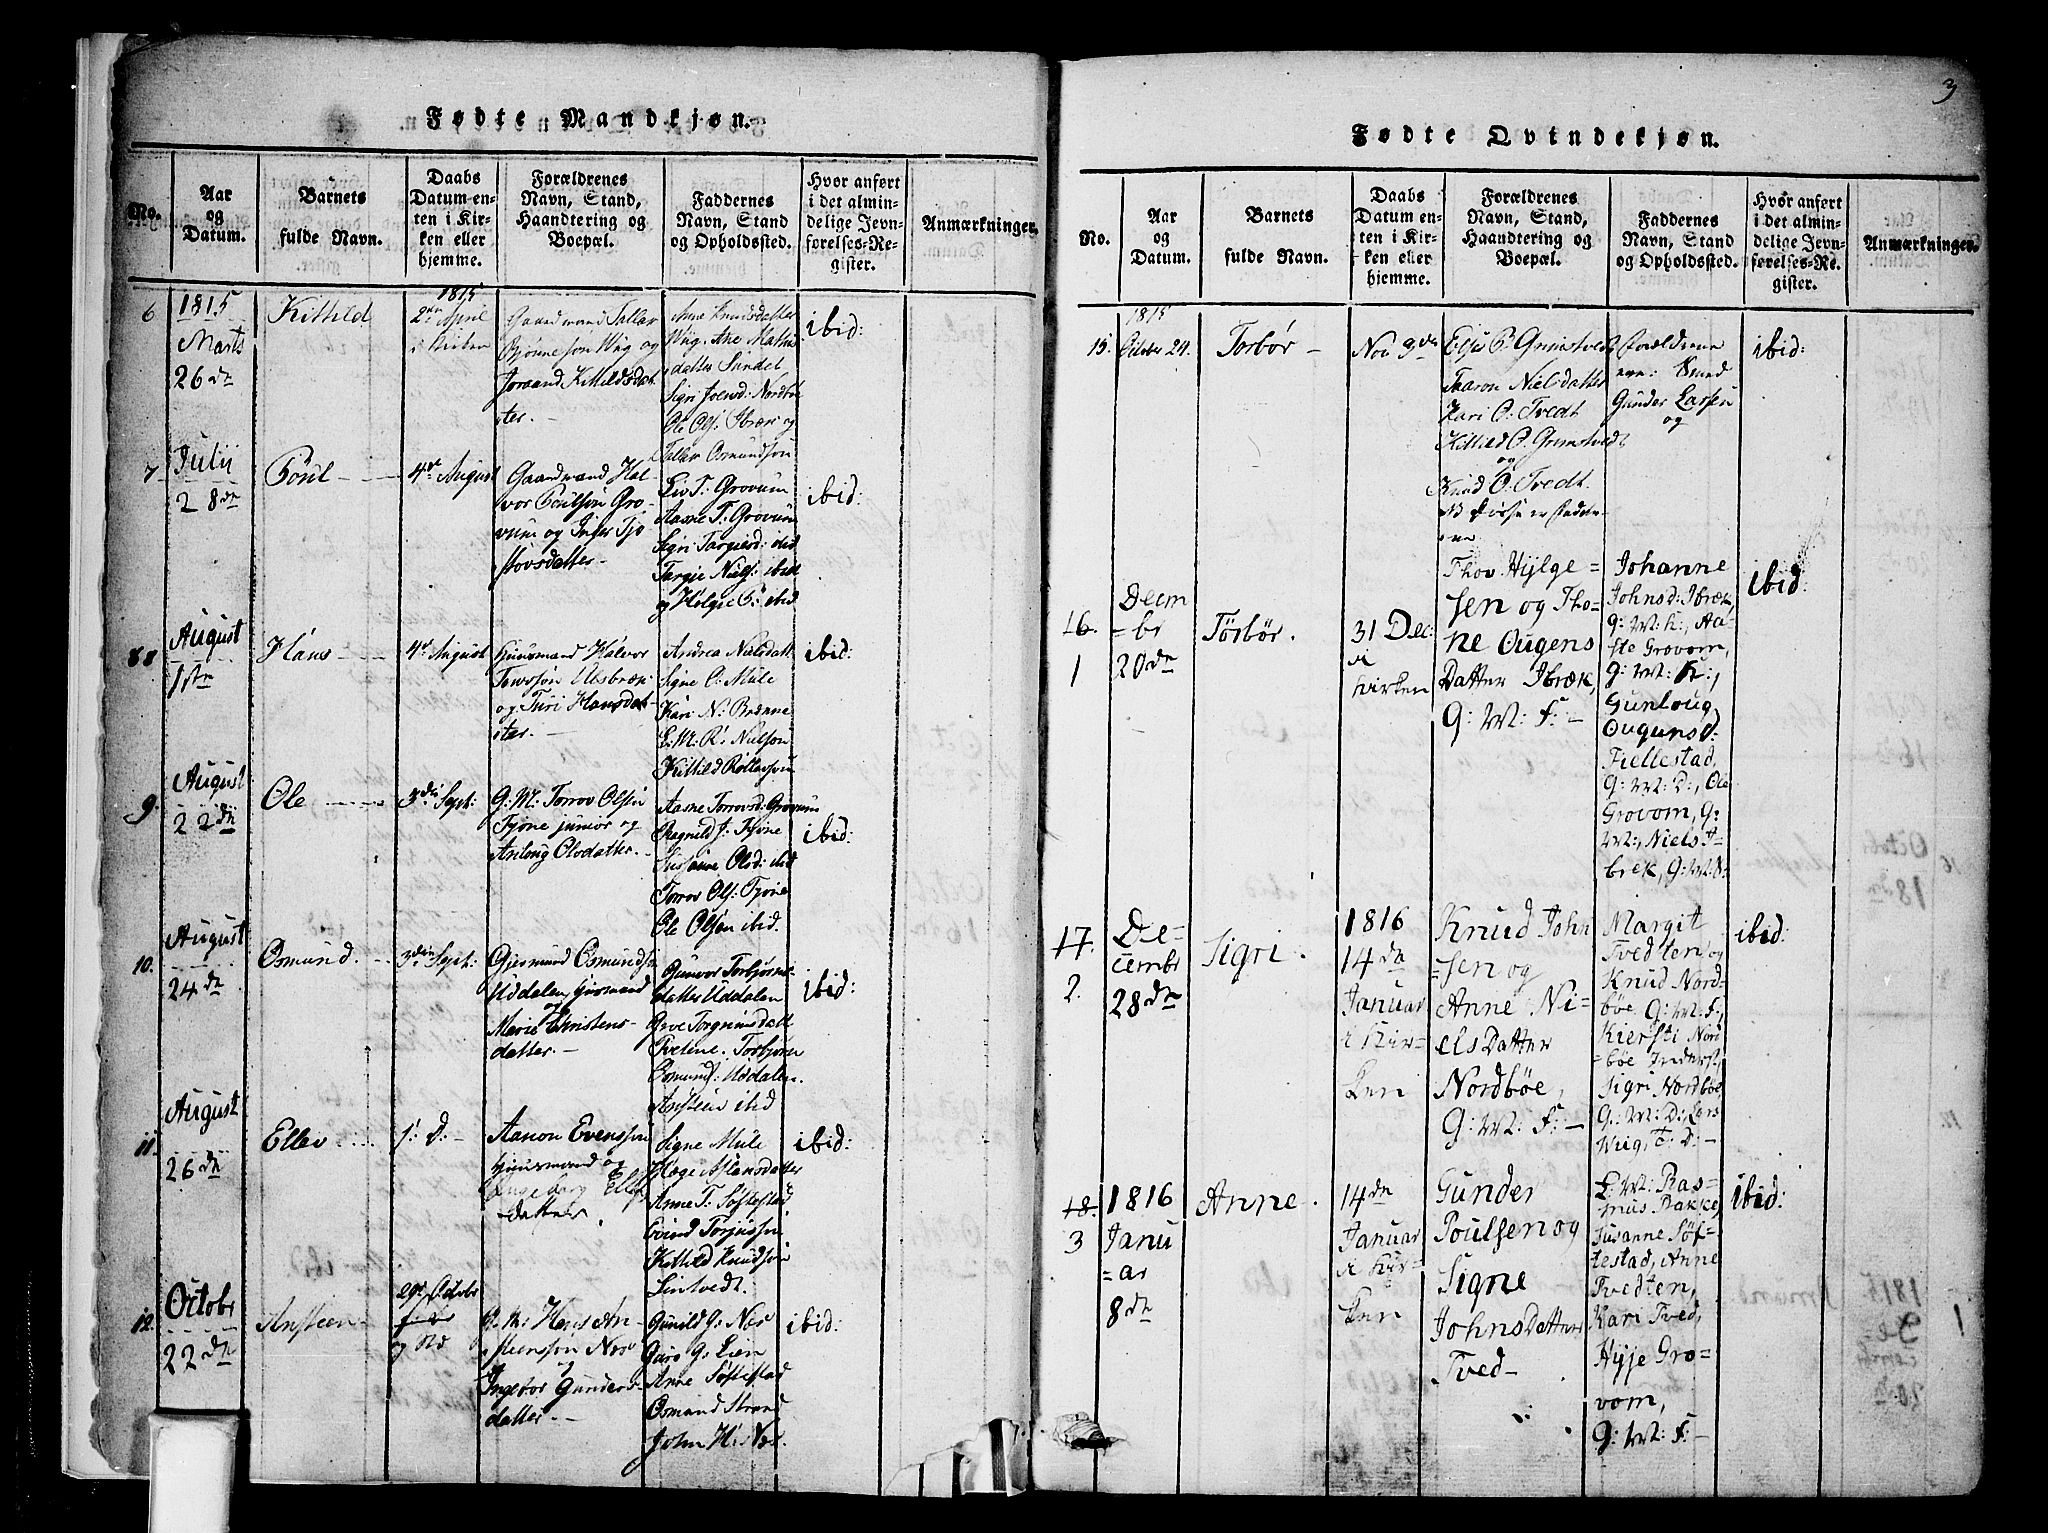 3
Fødte Mandkjøn.
No.
Aar
og
Datum.
Barnets
fulde Navn.
Daabs
Datum en-
ten i Kir-
ken eller
hjemme.
Forældrenes
Navn, Stand,
Haandtering og
Boepæl.
Faddernes
Navn, Stand
og Opholdssted.
Hvor anført
i det almin-
delige Jevn-
førelses-Re-
gister.
Anmærkninger.
6
1815
Marts
26 de
Kittild
1815
2den April
i Kirken
Gaardmand Tallav
Bjønneson Wiig og
Joraand Kittildsdat
ter.
Anne Knudsdatter
Wiig, Ane Mathis
datter Sundet
Sigri Joensd: Nordbøe
Ole Ols: Ibræk og
Tallav Osmundsøn
ibid:
7
Julii
28 de
Poul
4de August
Gaardmand Hal-
vor Poulsøn Gro-
vum og Inger Tjo
stovsdatter
Liv T: Grovum
Aasne T: Grovum
Sigri Targiesd: ibid
Targie Niels: ibid
og Helge O: ibid
ibid:
8
August
1ste
Hans
4de August
Huusmand Halvor
Towsøn Ulsbræk
og Turi Hansdat-
ter.
Andrea Nielsdatt
Signe O: Mule
Kari N: Brenne
L: M: R: Nielson
Kittild Rollefsøn
ibid:
9.
August
22 de
Ole
3die Sept:
G: M: Torrov Olsen
Tjøne junior og
Anloug Olvdatter.
Aasne Torrovsd: Grovum
Ragnild J: Tjøne
Susanne Olsd: ibid
Torrov Ols: Tjøne
Ole Olsøn ibid.
ibid:
10.
August
24 de
Osmund.
3die Sept:
Gjermund Osmundsøn
Uddalen, huusmand
og
Marie Christens-
datter.
Gunvor Torbjørns-
datter Uddalen
Torbjørn
Osmunds: Uddalen.
Ansteen ibid
ibid:
11.
August
26 de
Ellev
s: D:
Aanon Evensson
huusmand og
Ingeborg Ellefs
datter.
Signe Mule
Høge Aslansdatter
Anne T. Søftestad
Evind Torjussøn
Kittild Knudsøn
Lintvedt.
ibid:
12.
Octobr
22 de
Ansteen
29de Octobr
G: M: Hans An-
steensson Nes
og
Ingebor Gunders-
datter.
Gunild G: Nes
Guro G: Lien
Anne Søftestad
Osmund Strand
John H: Nes.
ibid:
Fødte Qvindekjøn.
No.
Aar
og
Datum.
Barnets
fulde Navn.
Daabs
Datum en-
ten i Kir-
ken eller
hjemme.
Forældrenes
Navn, Stand,
Haandtering og
Boepæl.
Faddernes
Navn, Stand
og Opholdssted.
Hvor anført
i det almin-
delige Jevn-
førelses-Re-
gister.
Anmærkninger.
15.
1815
October 24.
Torbør
Nov 9de
Elsi O. Grimstvedt
Aaron Nielsdatter
Kari O: Tvedt
Kittild O. Grimstvedt
og
Knud O. Tvedt.
NB disse er fadder-
ne
Forældrene
ere: Smed
Gunder Larsen
og
ibid:
16.
1
Decem
=br
20de
Torbør.
31 Dec:
i
Kirken
Thov Hylge=
sen og Tho-
ne Ougens
Datter Ibræk,
G: M: F:
Johanne
Johnsd: Ibræk,
g: M: K:, Aa-
ste Grovom,
G: M: K:,
Gunloug
Ougunsd:
Fiellestad,
G: M: D:, Ole
Grovom, G:
M:, Niels I-
brek, G: M: S:
ibid:
17.
2.
De=
cembr
28de
Sigri.
1816
14de
Januar
i Kir=
ken
Knud John
=sen og
Anne Ni=
elsDatter
Nordbøe,
G: M: F:
Margit
Tvedten, og
Knud Nord-
bøe G: M: F:,
Kiersti Nord
=bøe Inderst,
Sigri Nordbøe
G: M: D:, Lars
Wiig, T: D:
ibid:
18.
3
1816
Janu
=ar
8de
Anne.
14de
Januar
i Kir=
ken
Gunder
Poulsen og
Signe
JohnsDatter
Tved
L: M: Ras=
mus Bakke,
Susanne Søf=
testad, Anne
Tvedten,
Kari Tved,
Hyje Gro=
vom,
G: M: F:
ibid: